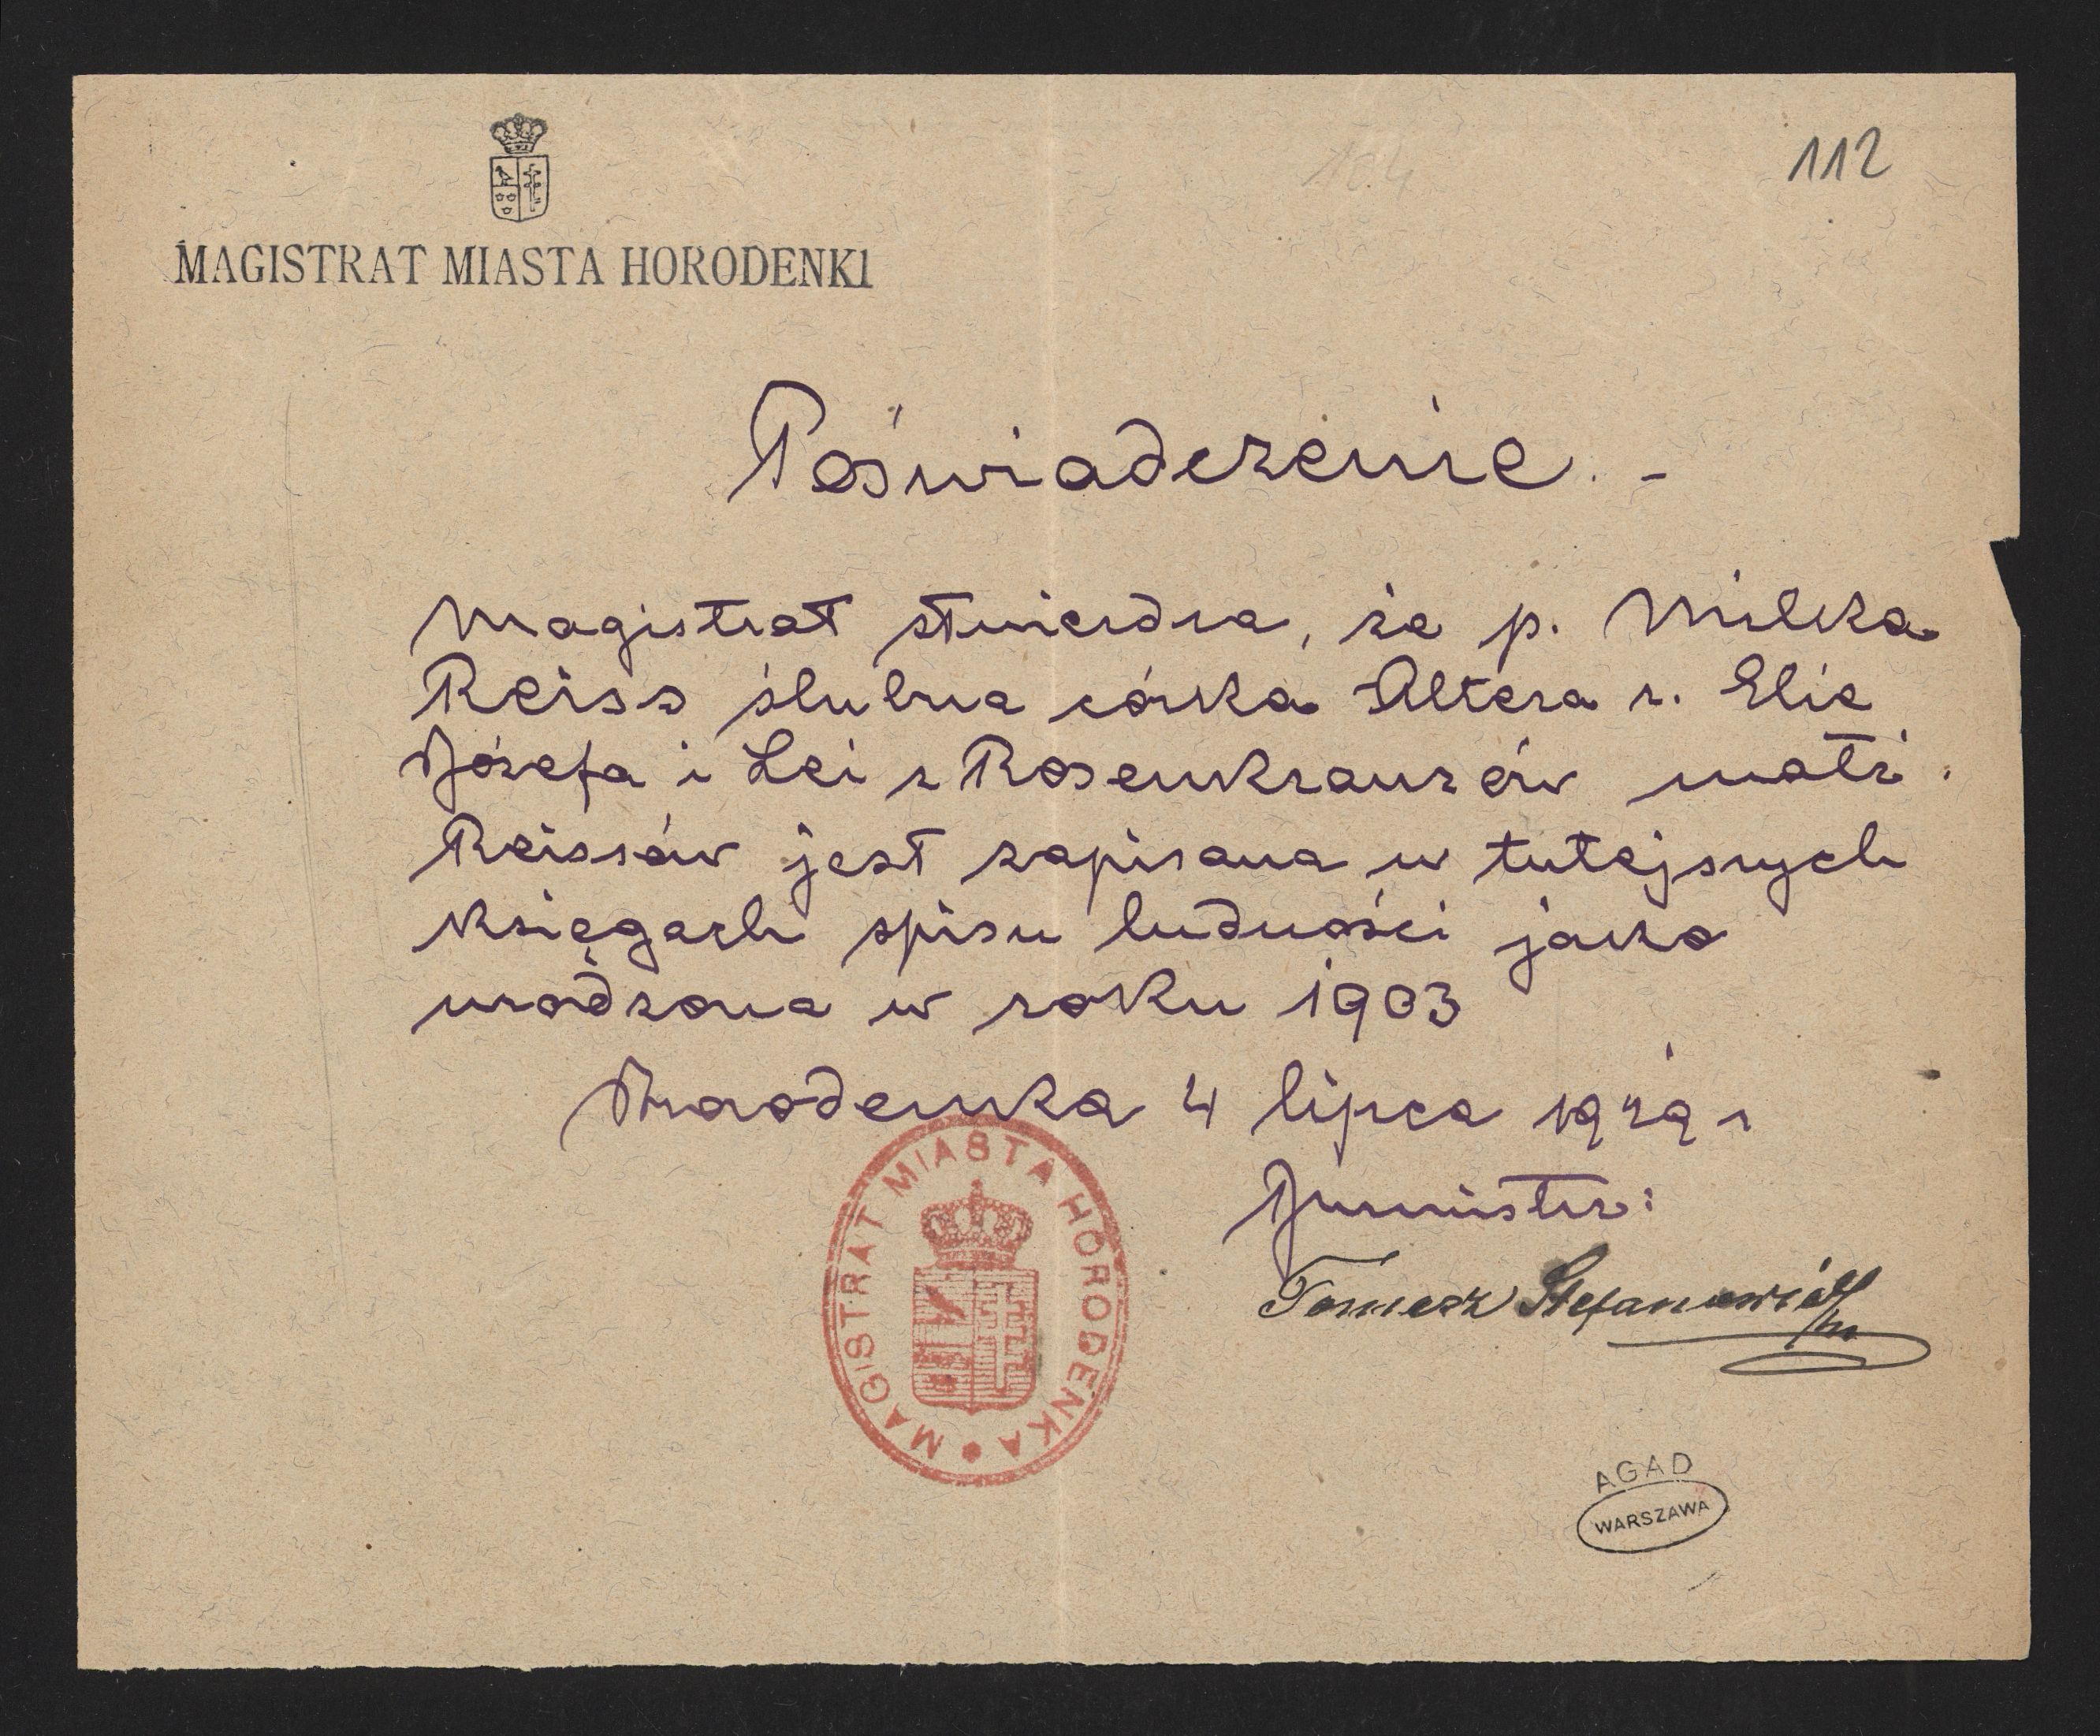 104
112
MAGISTRAT MIASTA HORODENKI
Poświadczenie. -
Magistrat stwierdza, że p. Milcza
Reiss ślubna córka Altera r. Elie
Józefa i Lei z Rosenkranzów małż.
Reissów jest zapisana w tutejszych
księgach spisu ludności jako
urodzona w roku 1903
Horodenka 4 lipca 1929 r
Burmistrz:
Tomasz Stefanowicz
MAGISTRAT MIASTA HORODENKA
AGAD
WARSZAWA